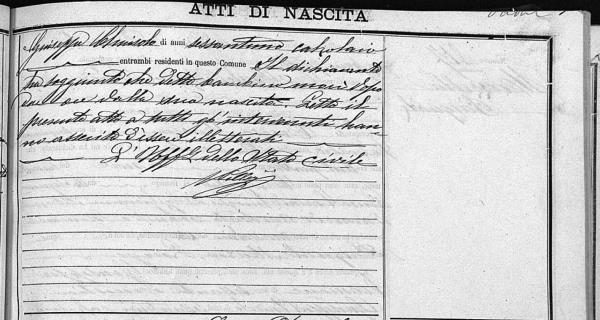 ATTI DI NASCITA
Giuseppe di anni sessantuno calzolaio
entrambi residenti in questo Comune Il dichiarante
ha soggiunto che detto bambino morì dopo
ore dalla sua nascita. Letto il
presente atto a tutti gl' intervenuti han-
no asserito d'essere illetterati
L' Uff.le dello Stato civile